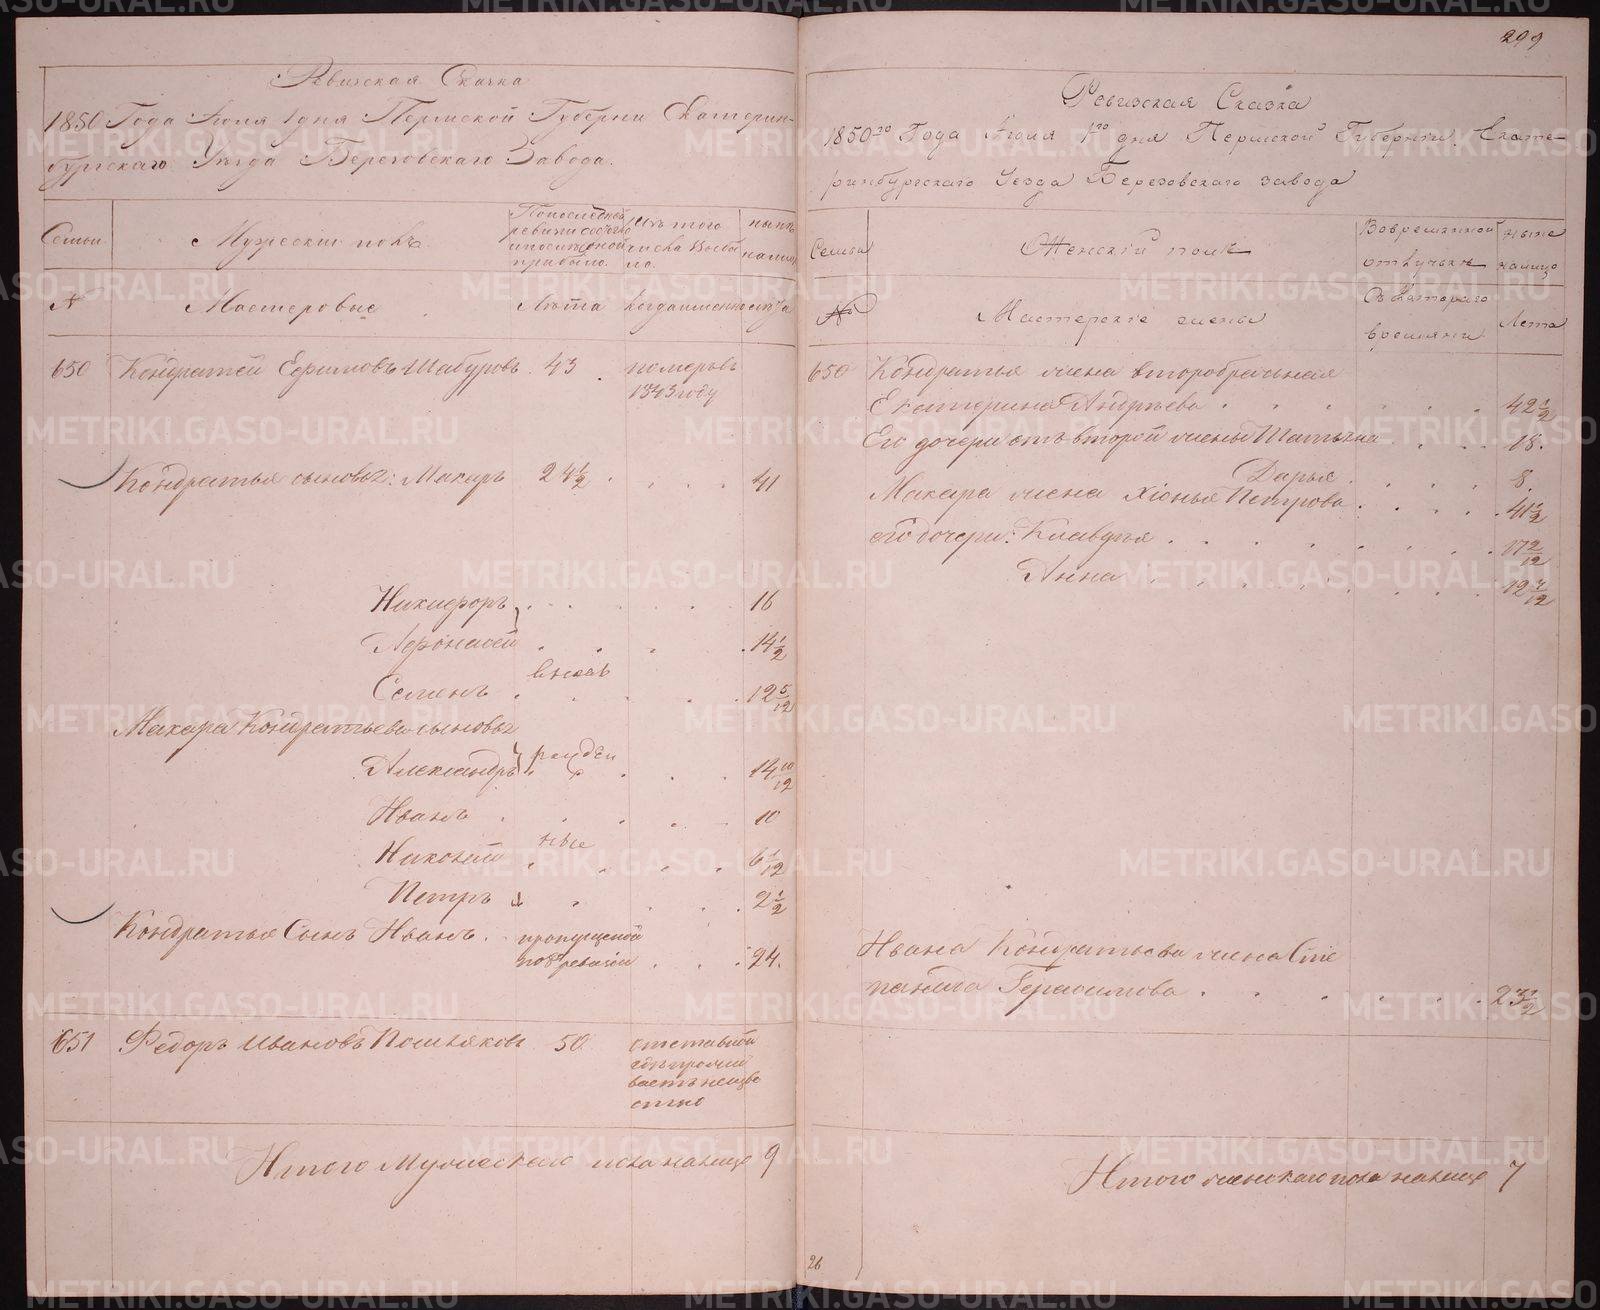 299
Ревизская Сказка
1850 Года Июля 1 дня Пермской Губернии Екатерин-
бургскаго Уезда Березовскаго Завода.
Семьи
Мужеский полъ
По последней
ревизии состояло
и после оной
прибыло.
Изъ того
числа выбы
ло.
ныне
налицо
№
Мастеровые
Лета
когда именно
лета
650 Кондратей Ефимовъ Шабуровъ 43 померъ
1843 году
Кондратья сыновья: Макаръ 24 1/2 41
Никифоръ 16
Афонасей 14 1/2
вновь
Семенъ 12 5/12
Макара Кондратьева сыновья
рожден
Александръ 14 10/12
Иванъ 10
ные
Николай 6 1/12
Петръ 2 1/2
Кондратья Сынъ Иванъ. пропущеной
по 8й ревизии 24.
651 Федоръ Ивановъ Поздняковъ 50 отставной
где прожи
ваетъ неизве
стно
Итого Мужескаго пола налицо 9
Ревизская Сказка
1850го Года Июля 1го дня Пермской Губернии, Екате-
ринбургскаго Уезда Березовскаго завода
Семьи
Женский полъ
Во временной
отлучке
ныне
налицо
№
Мастерские жены
Съ котораго
времяни
Лета
650 Кондратья жена второбрачная
Екатерина Андреева 42 1/2
Его дочери отъ второй жены Татьяна 18.
Дарья 8
Макара жена Хионья Петрова 41 1/2
его дочери: Клавдья 17 2/12
Анна 12 7/12
Ивана Кондратьева жена Сте
панида Герасимова 23 1/2
Итого женскаго пола налицо 7
26
METRIKI.GASO-URAL.RU